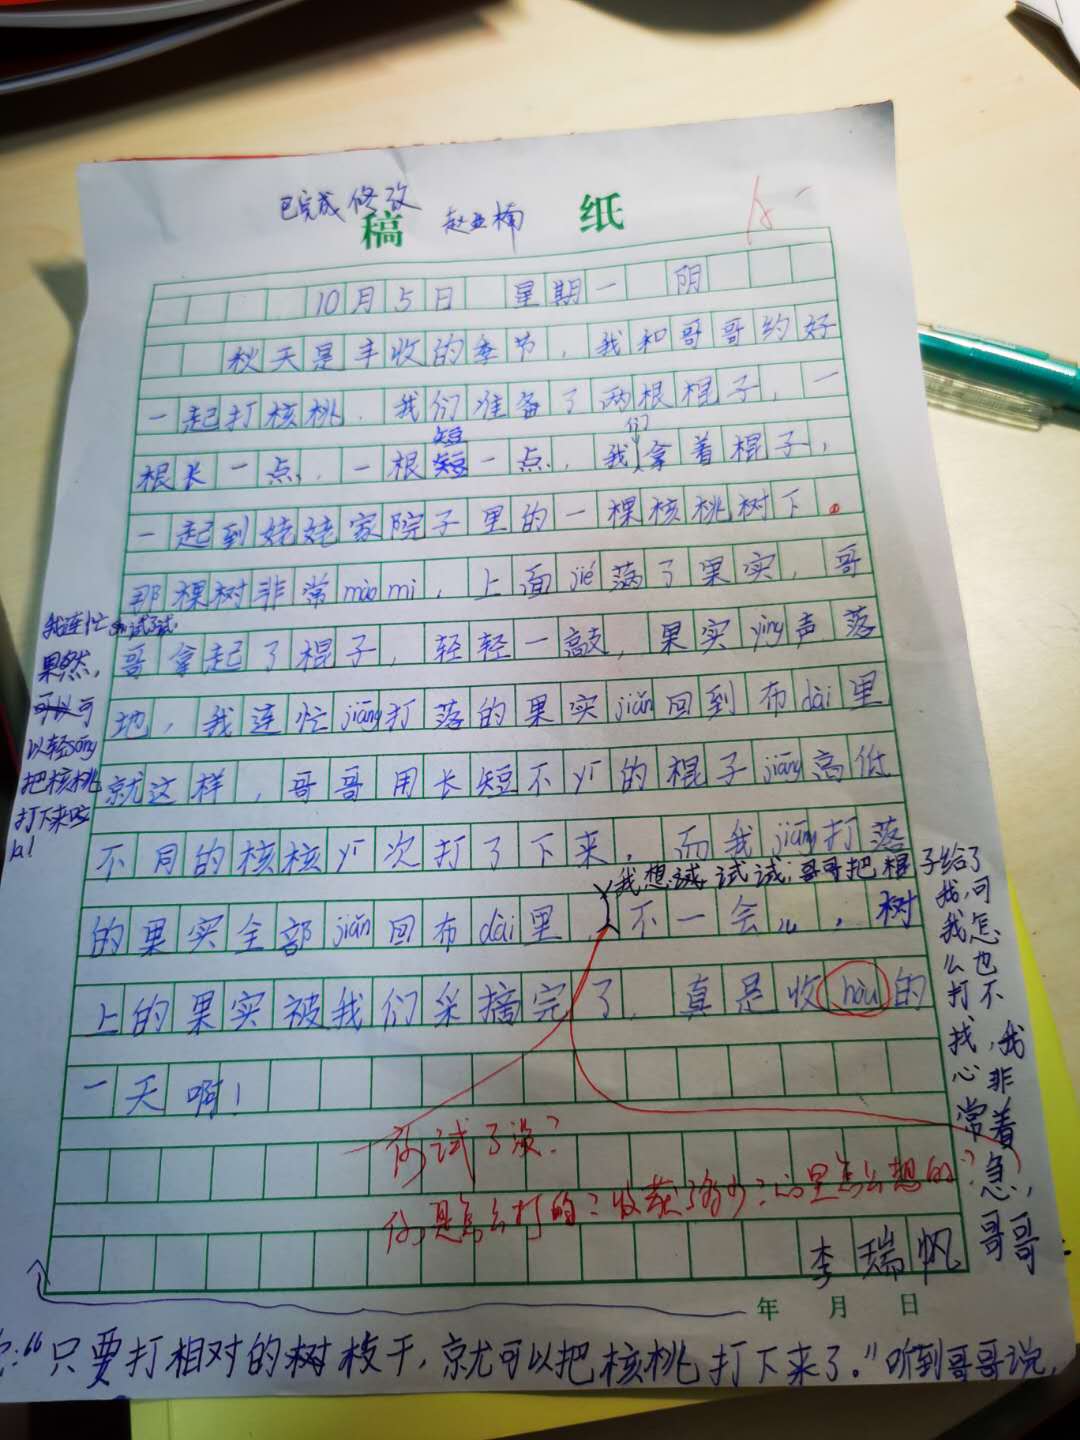 已完成修改
稿 赵亚楠 纸
A-
10月5日 星期一 阴
秋天是丰收的季节，我和哥哥约好
一起打核桃．我们准备了两根棍子，一
短 们
根长一点，一根短一点，我拿着棍子，
一起到姥姥家院子里的一棵核桃树下。
那棵树非常mào mì，上面jié满了果实，哥
哥拿起了棍子，轻轻一敲，果实yìng声落
地，我连忙jiāng打落的果实jiǎn回到布dài里
就这样，哥哥用长短不yī的棍子jiāng高低
不同的核核yī次打了下来，而我jiāng打落
的果实全部jiǎn回布dài里，不一会儿，树
上的果实被我们采摘完了．真是收hòu的
一天啊！
我想 试试；哥哥把棍子给了
我，可
我怎
么也
打不
找，我
心非
常着
急，
哥哥
："只要打相对的树枝干，就可以把核桃打下来了。"听到哥哥说，
我连忙 试了试．
果然，
可以可
以轻sōng
把核桃
打下来
la！
你试了没？
你是怎么打的？收获了多少？心里怎么想的？
李瑞帆
年 月 日